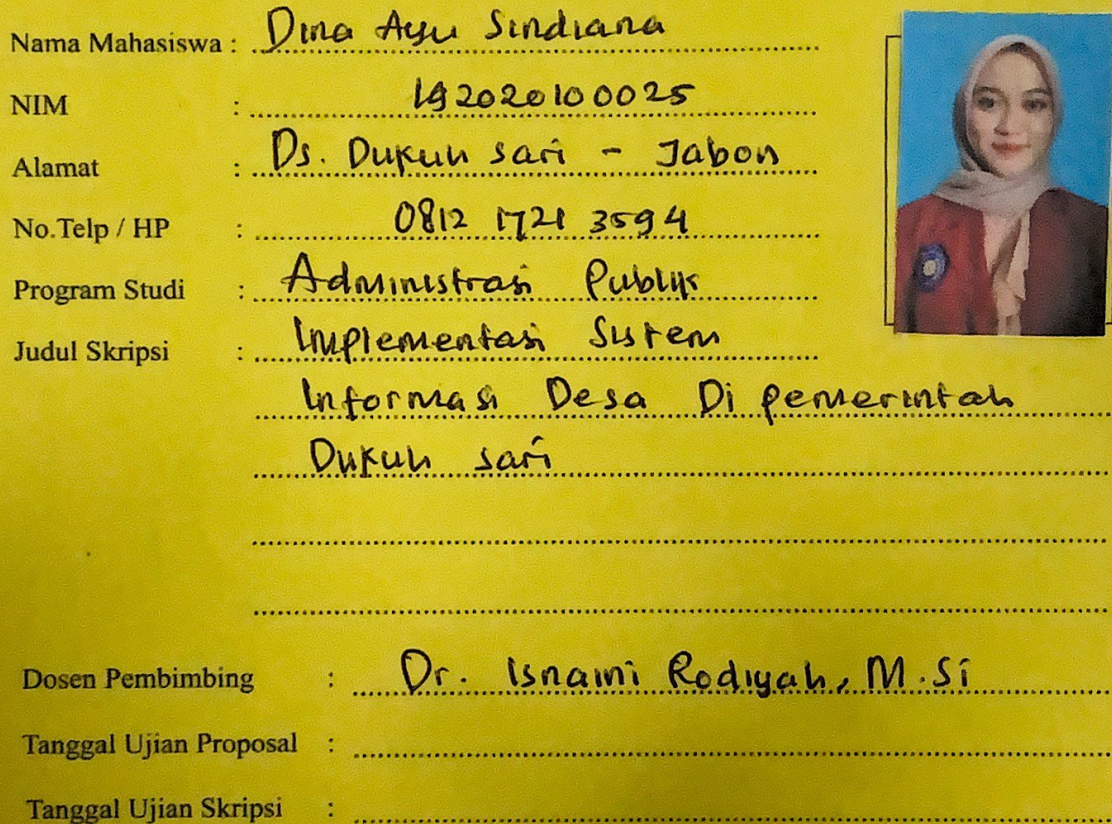 Nama Mahasiswa : Dina Ayu Sindiana
NIM : 192020100025
Alamat : Ds. Dukuh sari - Jabon
No.Telp / HP : 0812 1721 3594
Program Studi : Administrasi Publik
Judul Skripsi : Implementasi Sistem
Informasi Desa Di pemerintah
Dukuh sari
Dosen Pembimbing : Dr. Isnaini Rodiyah, M.Si
Tanggal Ujian Proposal :
Tanggal Ujian Skripsi :